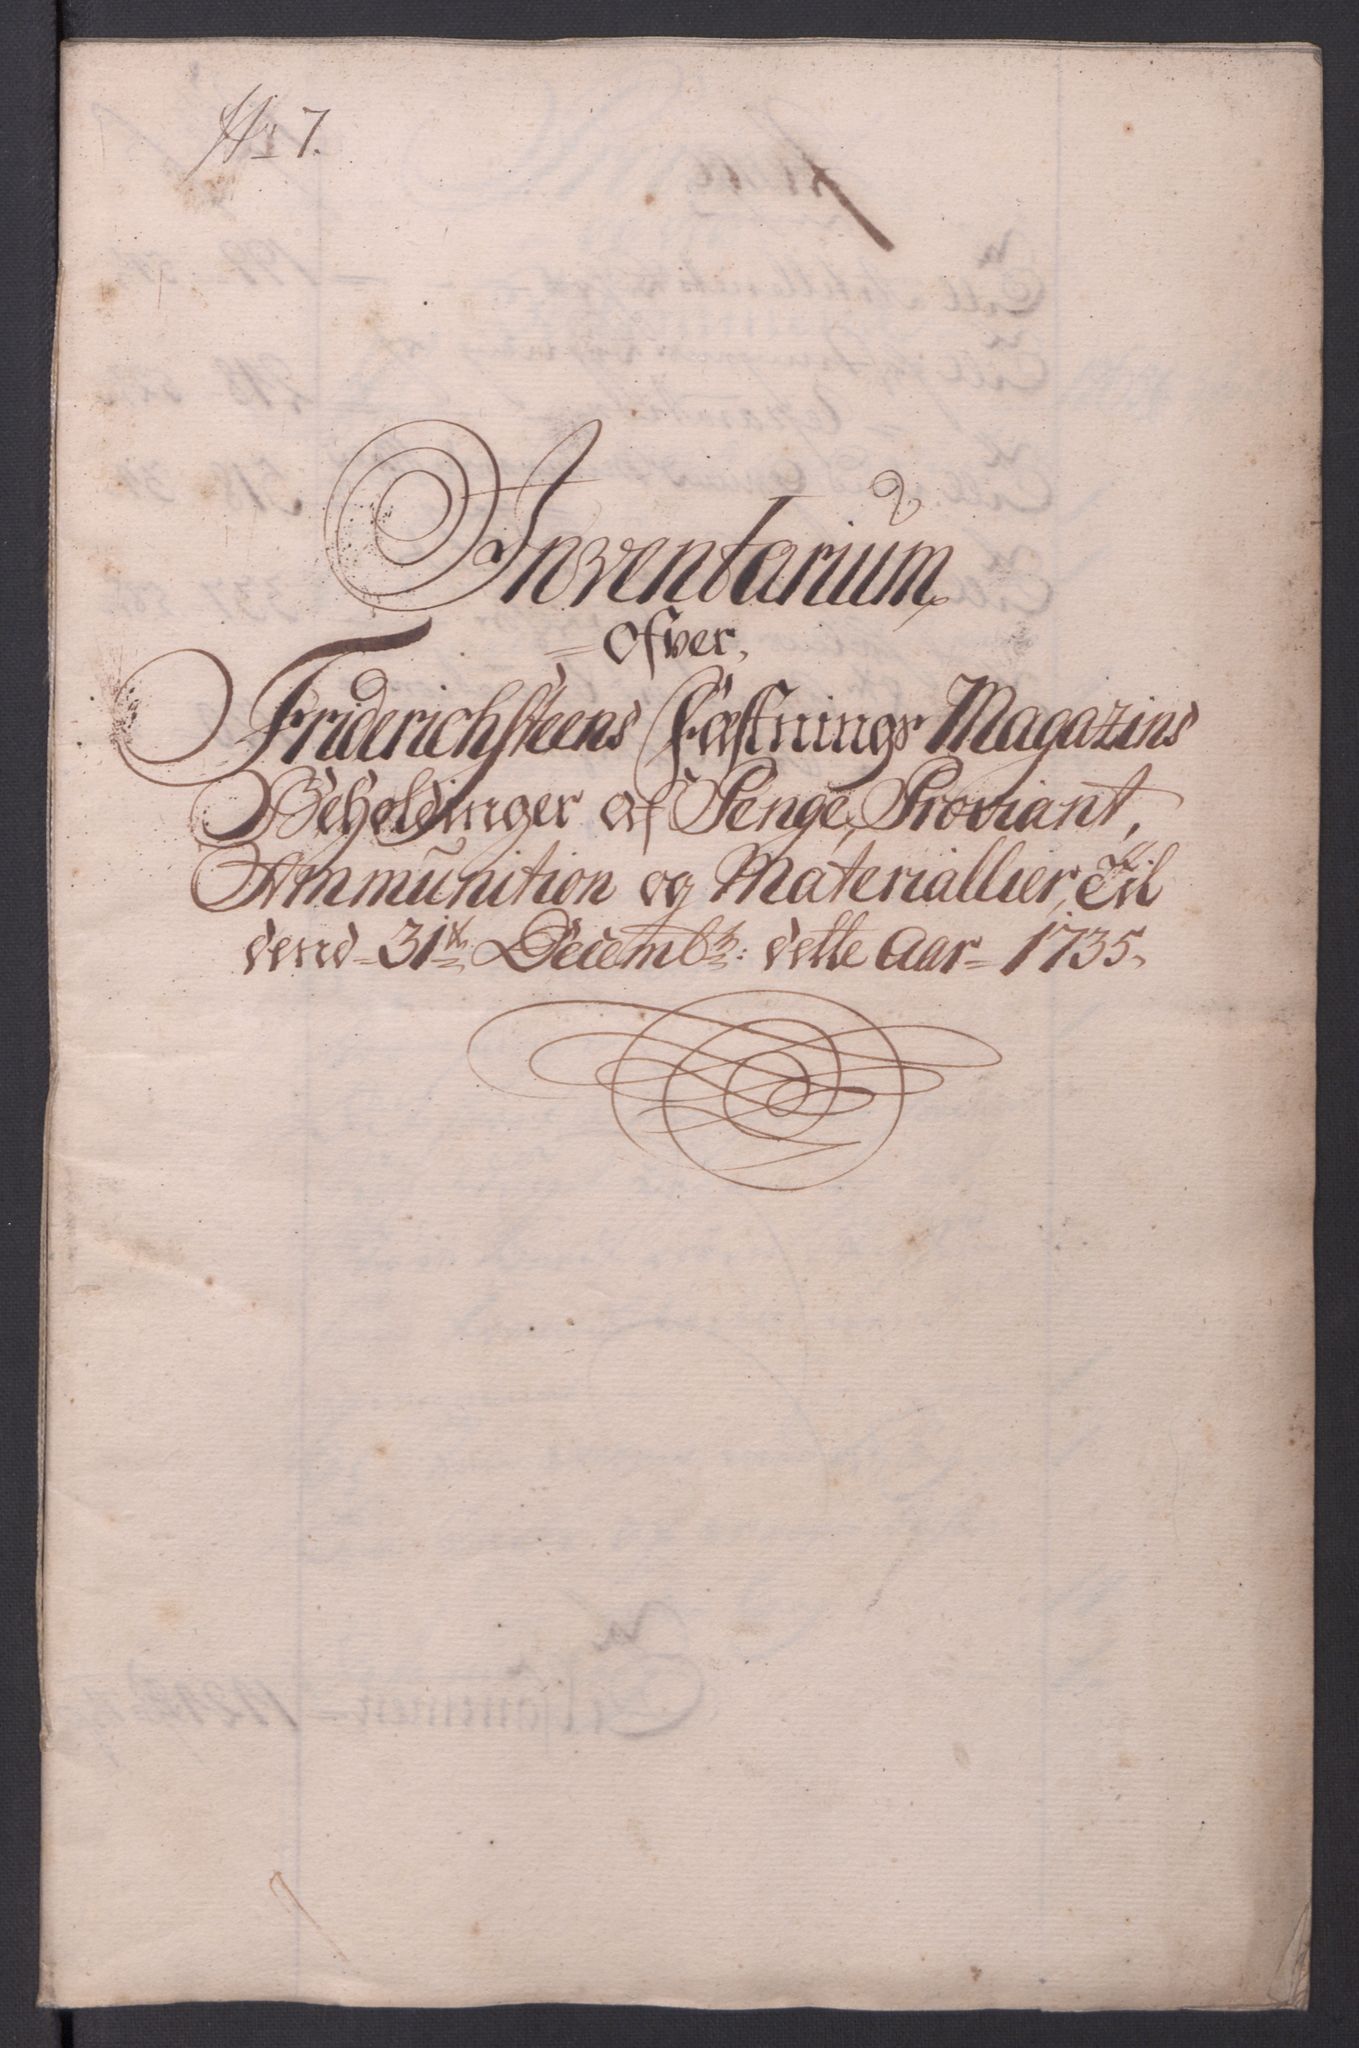 No 7.
Inventarium
Ofver,
Friderichsteens Fæstnings Magazins
Beholdninger af Penge, Proviant,
Ammunition og Materiallier, Til
dend 31te Decembr: dette Aar 1735.